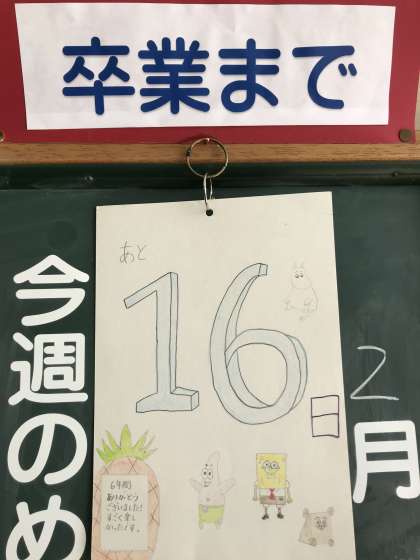 卒業まで
あと
16日
2月
今週のめ
6年間
ありがとう
ございました!
すごく楽し
かったです。